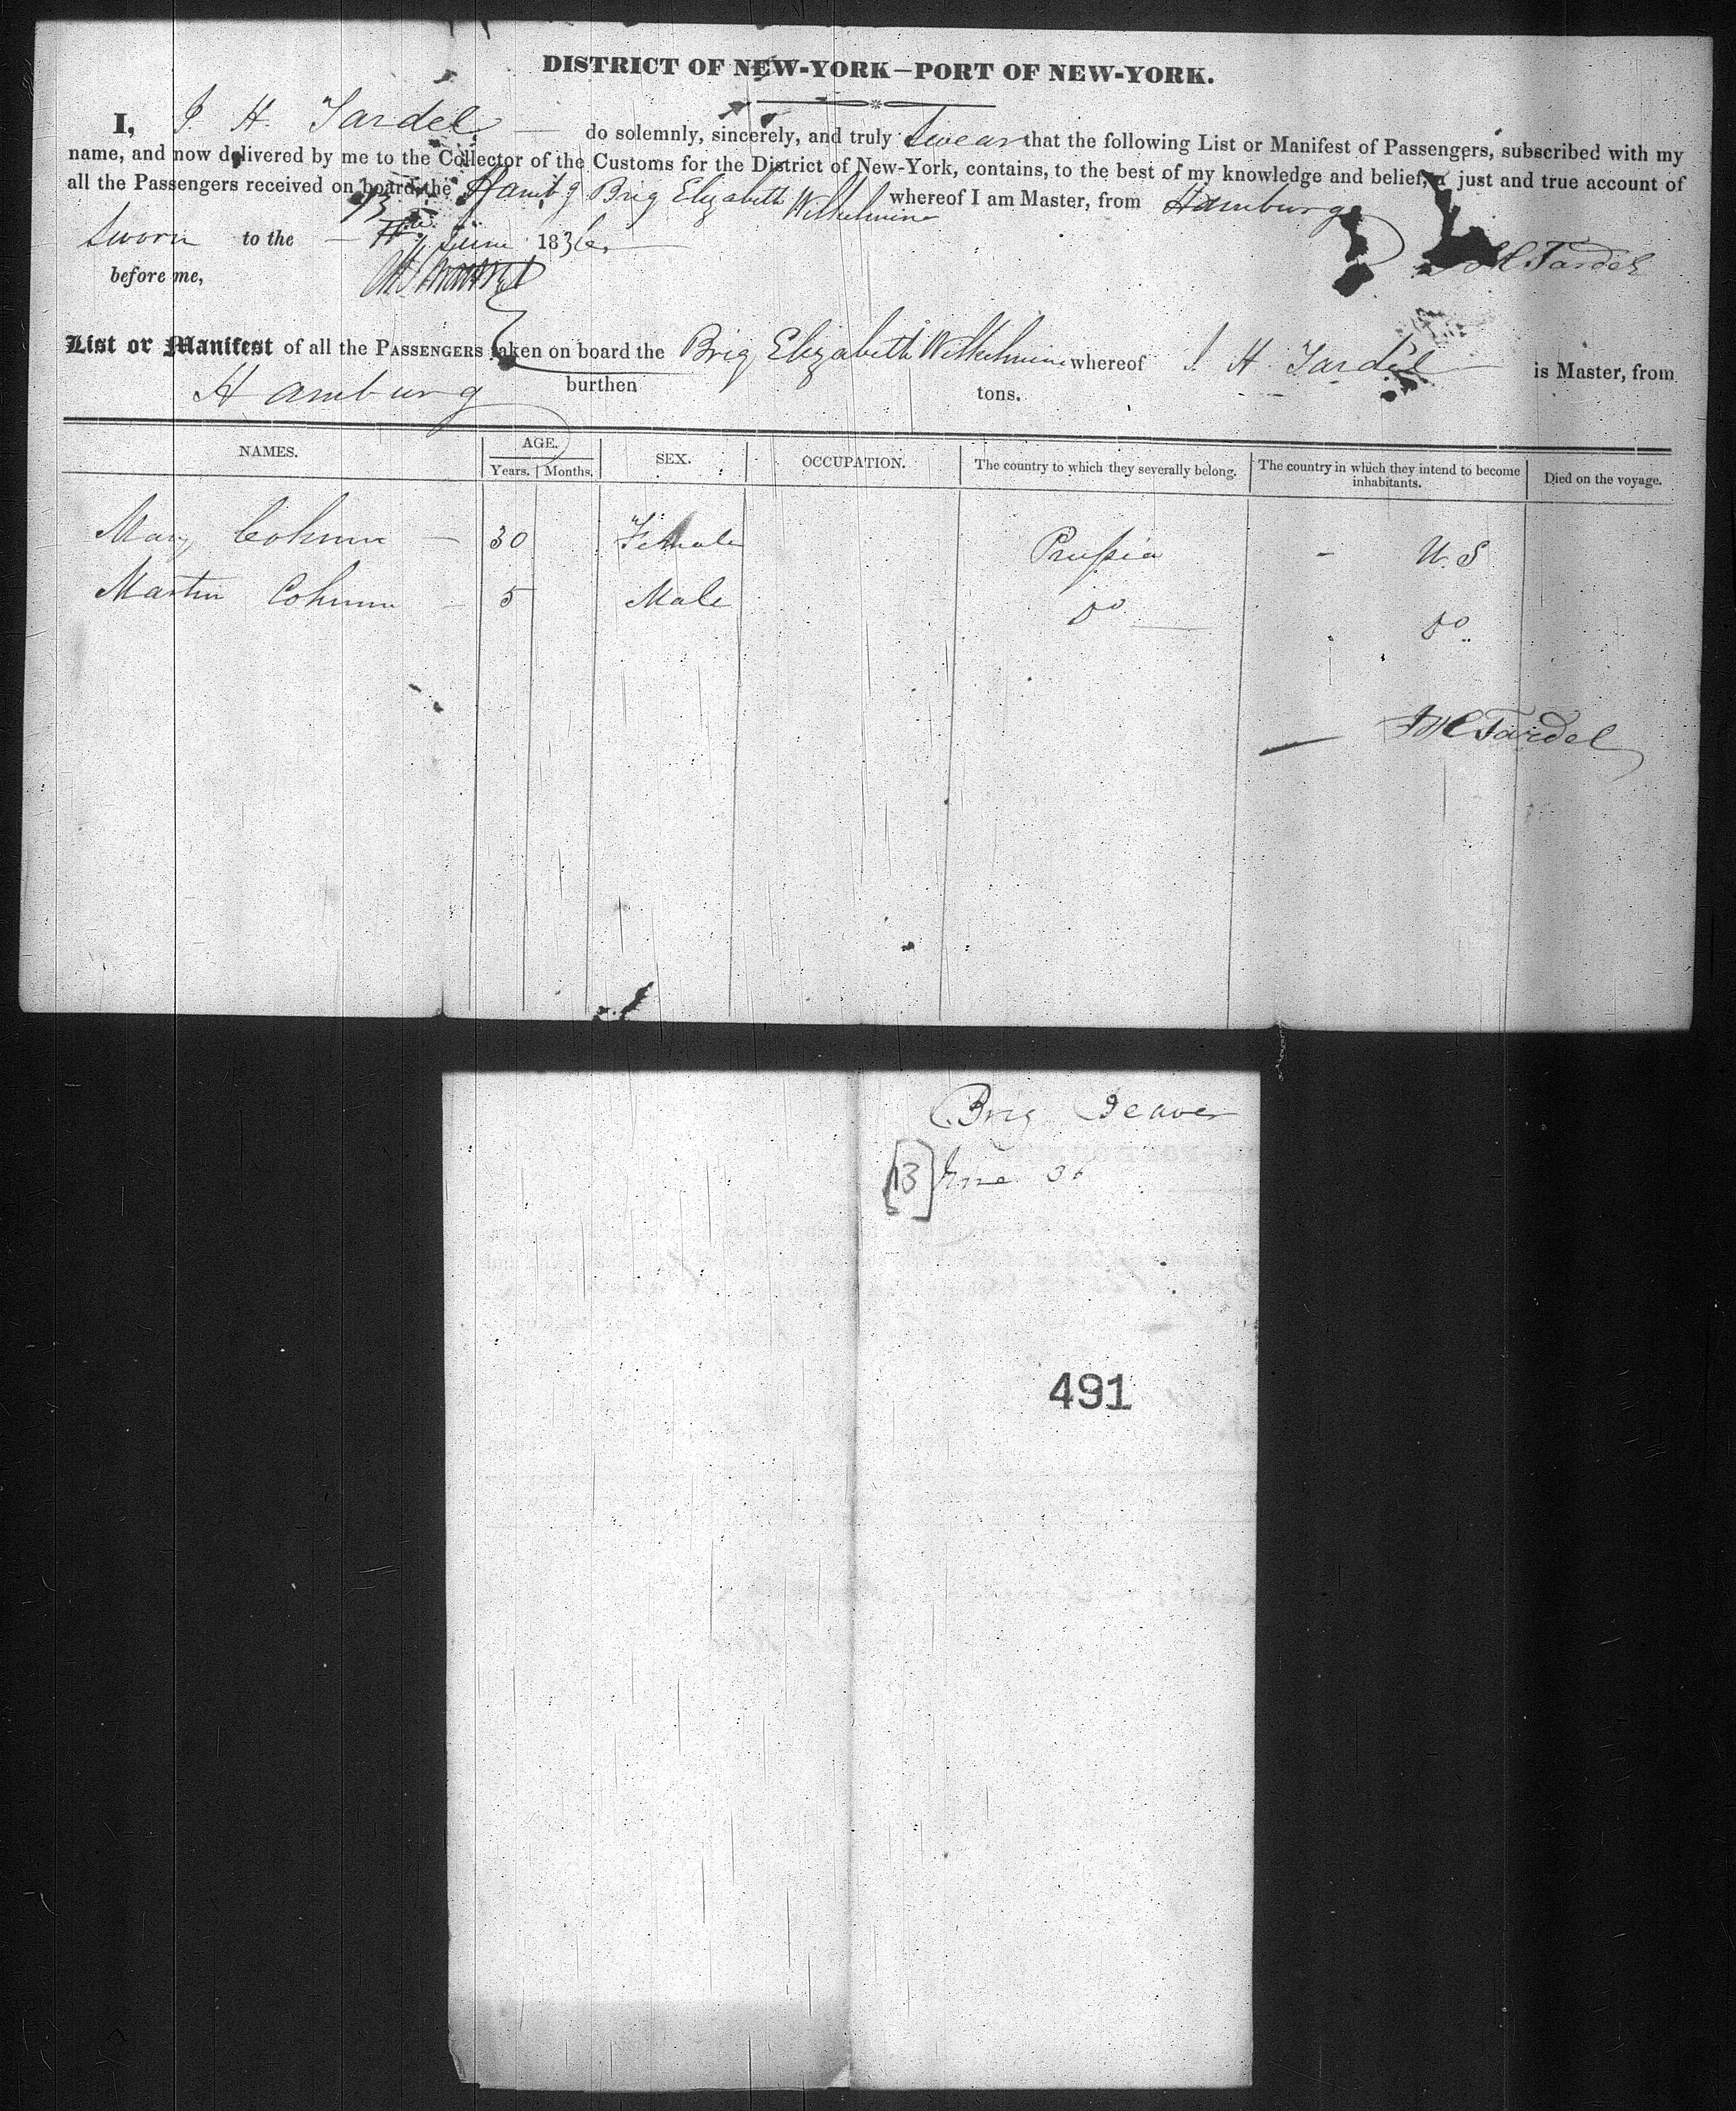 DISTRICT OF NEW-YORK—PORT OF NEW-YORK.
I, J. H. Tardel — do solemnly, sincerely, and truly swear that the following List or Manifest of Passengers, subscribed with my
name, and now delivered by me to the Collector of the Customs for the District of New-York, contains, to the best of my knowledge and belief, a just and true account of
all the Passengers received on board the Hambg Brig Elizabeth Wilhelmine whereof I am Master, from Hamburg
Sworn to the 13 June 1836. J H Tardel
before me,
List or Manifest of all the PASSENGERS taken on board the Brig Elizabeth Wilhelmine whereof J. H. Tardel is Master, from
Hamburg burthen tons.
NAMES. AGE. SEX. OCCUPATION. The country to which they severally belong. The country in which they intend to become inhabitants. Died on the voyage.
Years. Months.
Mary Cohnn — 30 Female Prussia - U. S
Martin Cohnn — 5 Male Do Do
J H Tardel
Brig Beaver
[13] June 36
491